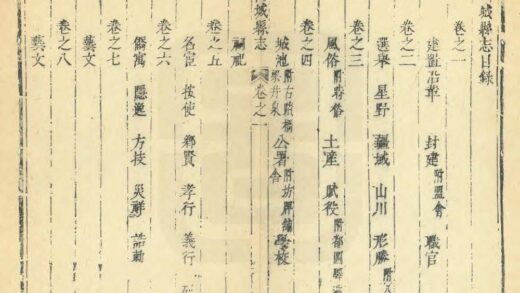 城縣志目錄
卷之一
建置沿革 封建附盟會 職官
卷之二
選舉 星野 疆域 山川 形勝附八
卷之三
風俗附 土產 賦役附都圖
卷之四
城池附古蹟橋梁井泉 公署附坊牌舖舍 學校
城縣志 卷之一
祠祀
卷之五
名宦 按使 鄉賢 孝行 義行
卷之六
僑寓 隱逸 方技 災祥 誥勅
卷之七
藝文
卷之八
藝文